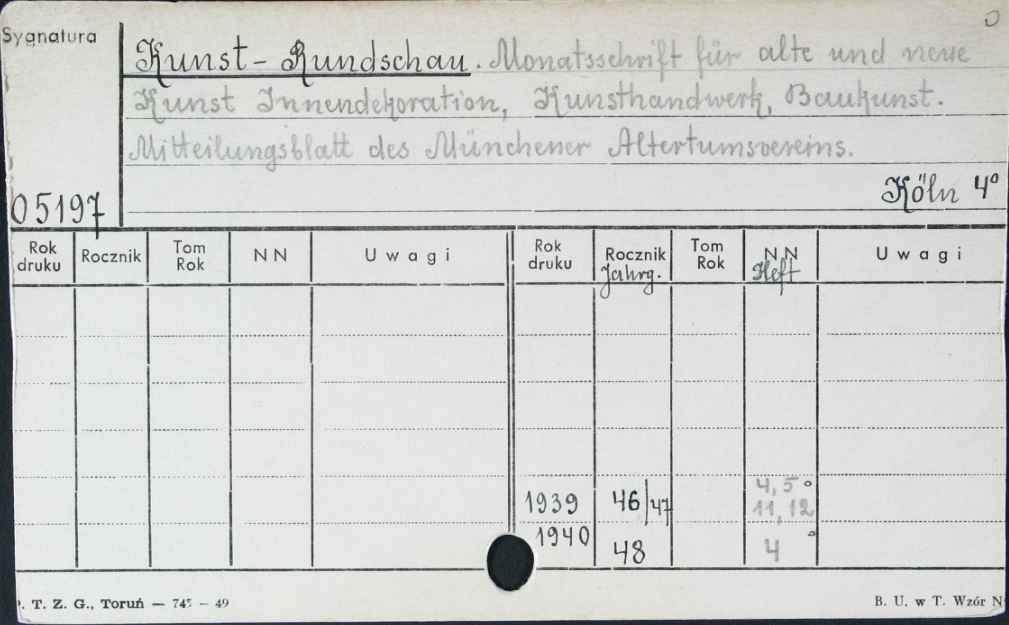 Sygnatura
Kunst - Rundschau. Monatsschrift für alte und neue
Kunst Innendekoration, Kunsthandwerk, Baukunst.
Mitteilungsblatt des Münchener Altertumsvereins.
Köln 4°
05197
Rok druku Rocznik Tom Rok NN Uwagi Rok druku Rocznik Jahrg. Tom Rok NN Heft Uwagi
1939 46/47 4, 5° 11, 12
1940 48 4°
T. Z. G., Toruń — 745 — 49
B. U. w T. Wzór N